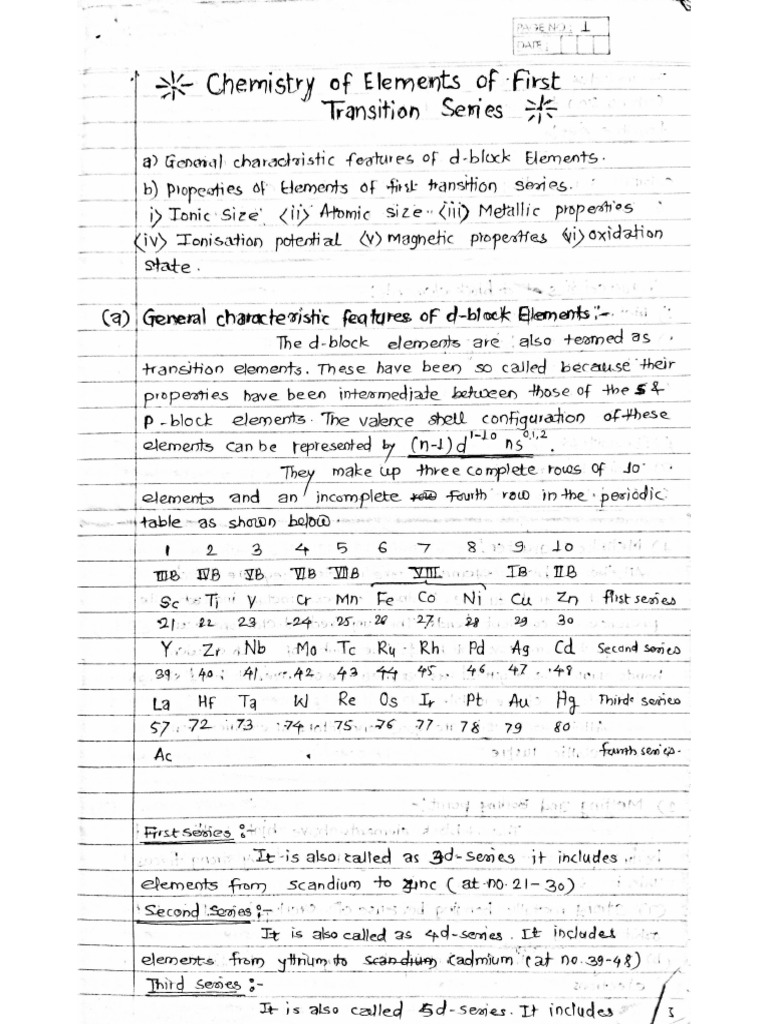 PAGE NO.: 1
DATE:
Chemistry of Elements of First
Transition Series
a) General charactristic features of d-block Elements.
b) Properties of Elements of first transition series.
i) Ionic Size (ii) Atomic size (iii) Metallic properties
(iv) Ionisation potential (v) Magnetic properties (vi) oxidation
state.
(a) General characteristic features of d-block Elements:-
The d-block elements are also termed as
transition elements. These have been so called because their
properties have been intermediate between those of the S &
P-block elements. The valence shell configuration of these
elements can be represented by (n-1)d¹⁻¹⁰ ns⁰,¹,².
They make up three complete rows of 10
elements and an incomplete fourth row in the periodic
table as shown below.
1 2 3 4 5 6 7 8 9 10
IIIB IVB VB VIB VIIB VIII IB IIB
Sc Ti V Cr Mn Fe Co Ni Cu Zn First series
21 22 23 24 25 26 27 28 29 30
Y Zr Nb Mo Tc Ru Rh Pd Ag Cd Second series
39 40 41 42 43 44 45 46 47 48
La Hf Ta W Re Os Ir Pt Au Hg Third series
57 72 73 74 75 76 77 78 79 80
Ac fourth series.
First series:-
It is also called as 3d-series it includes
elements from scandium to zinc (at.no. 21-30)
Second Series:-
It is also called as 4d-series. It includes
elements from yttrium to scandium Cadmium (at no.39-48)
Third Series:-
It is also called 5d-series. It includes